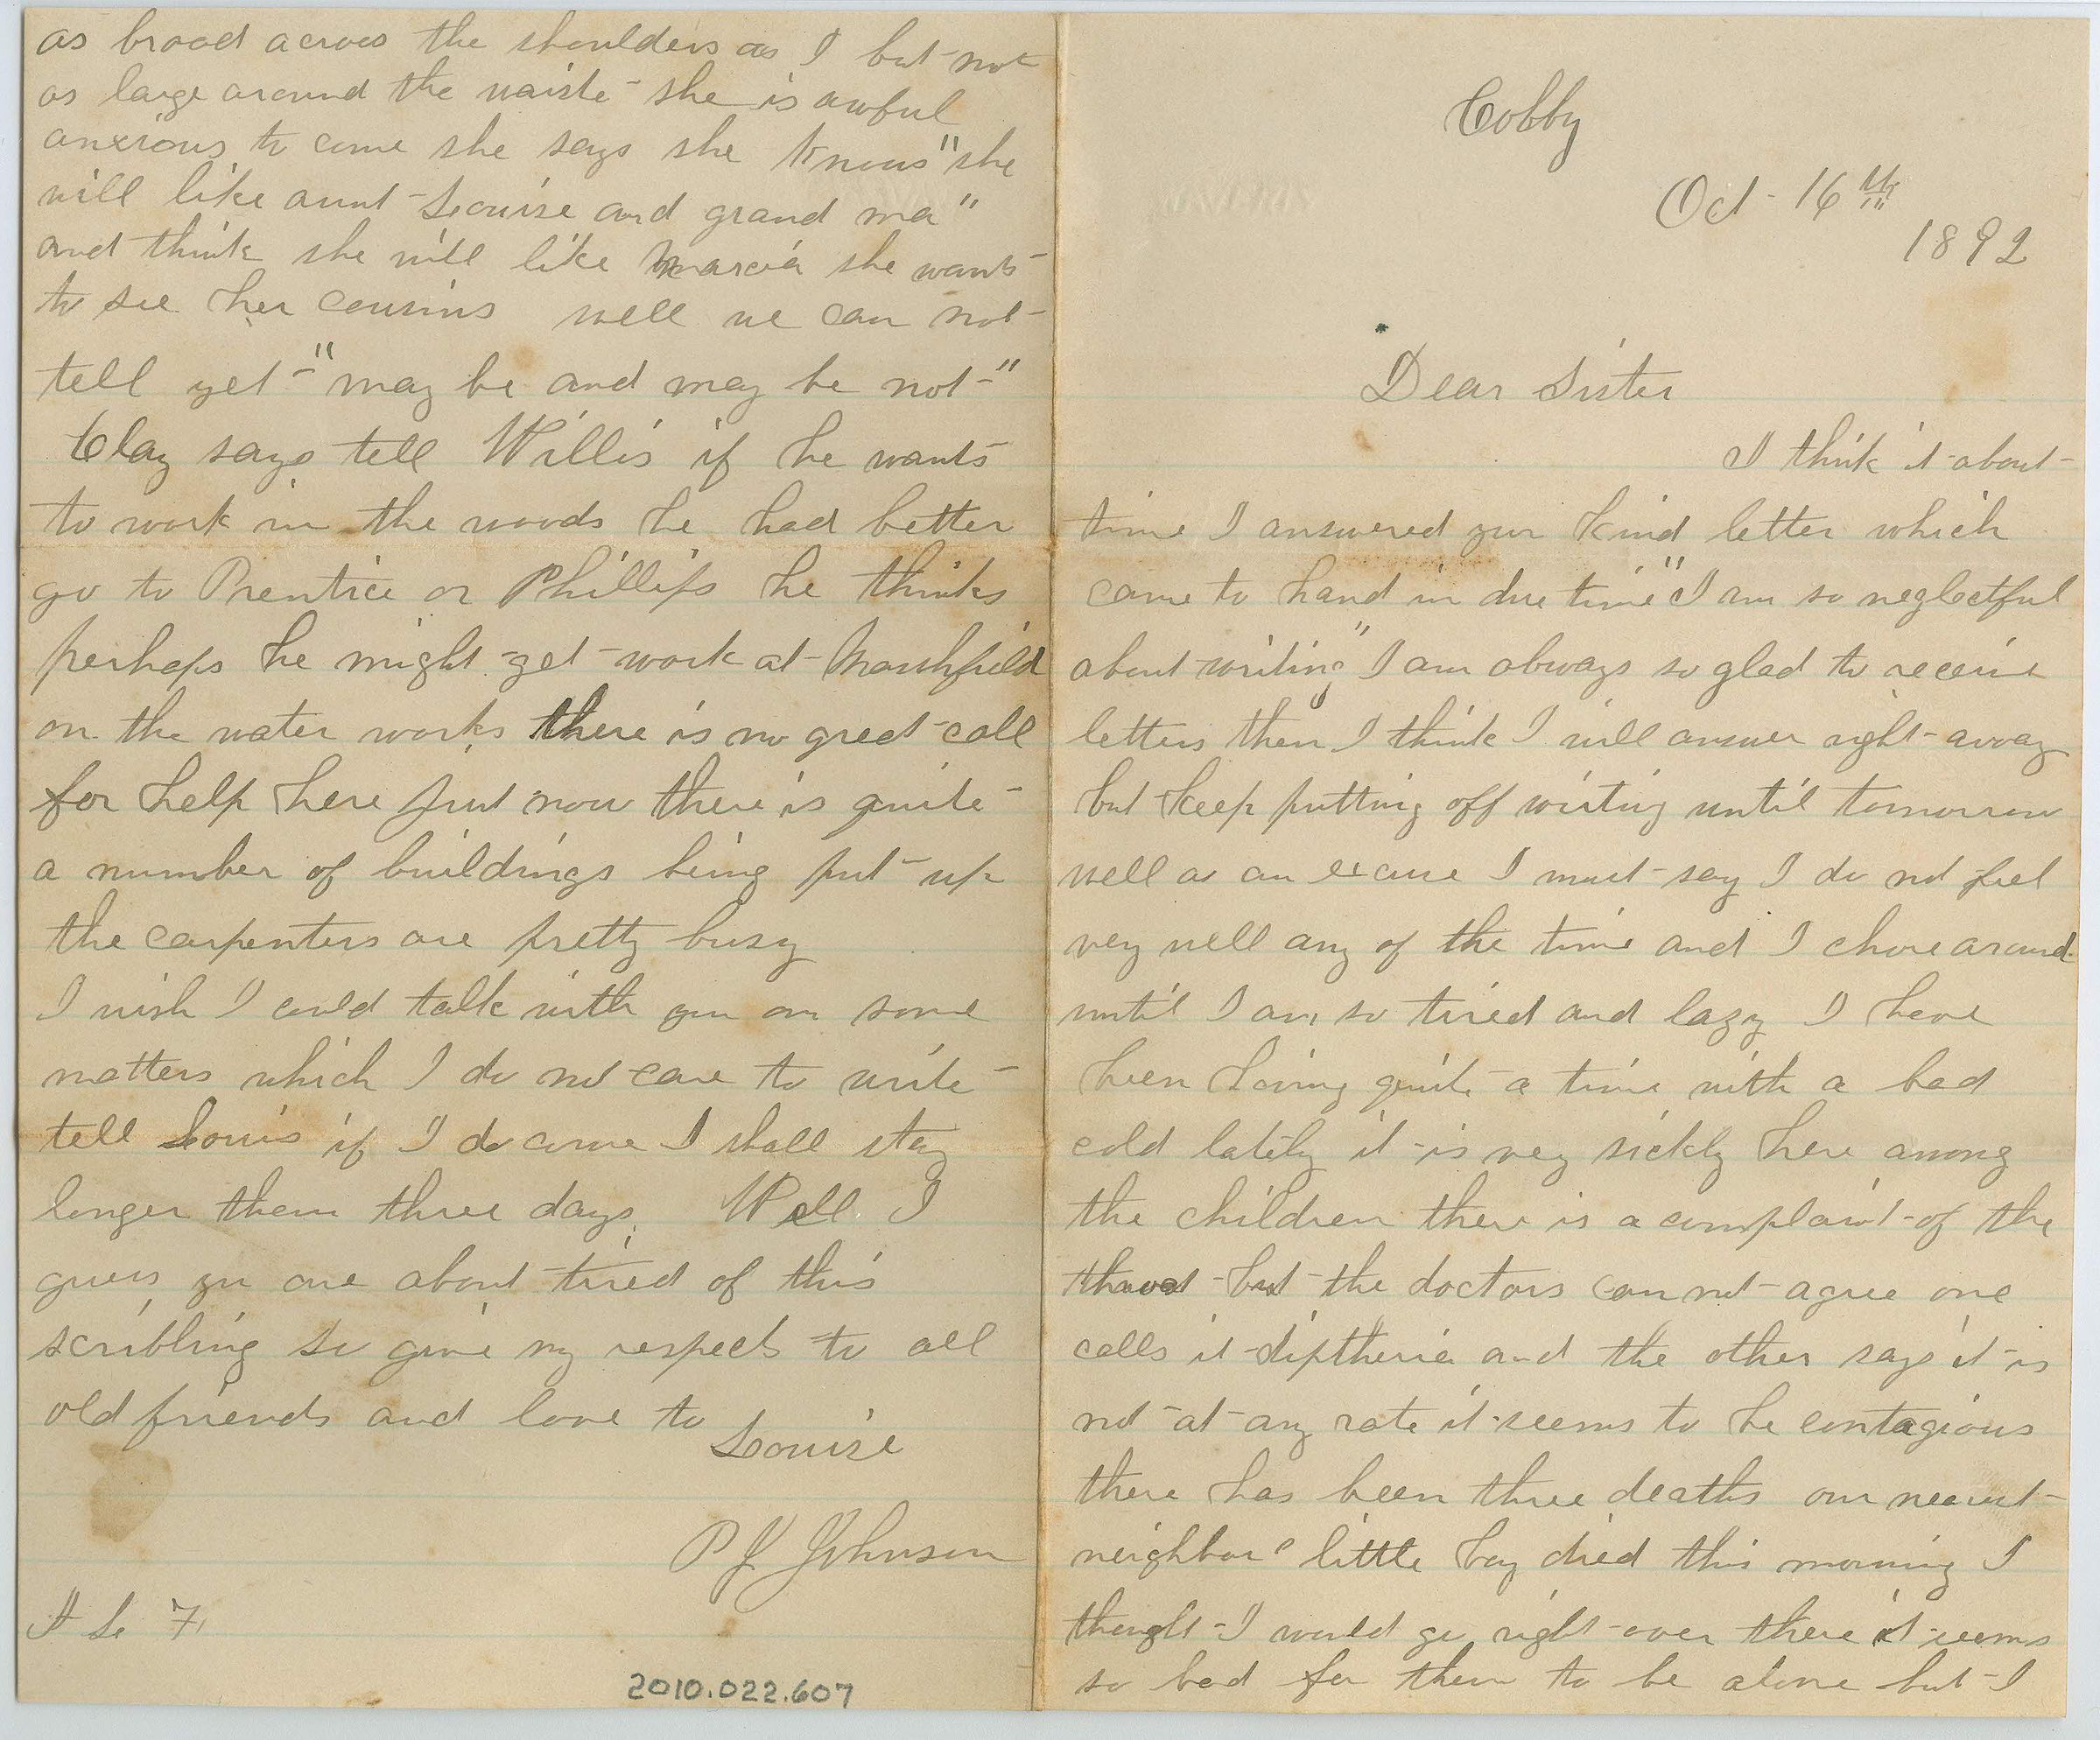 Colby
Oct 16th
1892
Dear Sister
I think it about
time I answered your kind letter which
came to hand in due time "I am so neglectful
about writing" I am always so glad to receive
letters then I think I will answer right away
but keep putting off writing until tomorrow
well as an excuse I must say I do not feel
very well any of the time and I chore around
until I am so tired and lazy I have
been having quite a time with a bad
cold lately it is very sickly here among
the children there is a complaint of the
throat but the doctors can not agree one
calls it diptheria and the other says it is
not at any rate it seems to be contagious
there has been three deaths our nearest
neighbors little boy died this morning I
thought I would go right over there it seems
so bad for them to be alone but I
as broad across the shoulders as I but not
as large around the waiste she is awful
anxious to come she says she knows "she
will like aunt Louise and grand ma"
and think she will like Marcia she wants
to see her cousins well we can not
tell yet "may be and may be not"
Clay says tell Willis if he wants
to work in the woods he had better
go to Prentice or Phillips he thinks
perhaps he might get work at Marshfield
on the water works there is no great call
for help here just now there is quite
a number of buildings being put up
the carpenters are pretty busy
I wish I could talk with you on some
matters which I do not care to write
tell Louis if I do come I shall stay
longer than three days. Well I
guess you are about tired of this
scribling so give my respects to all
old friends and love to
Louise
P J Johnson
2010.022.607